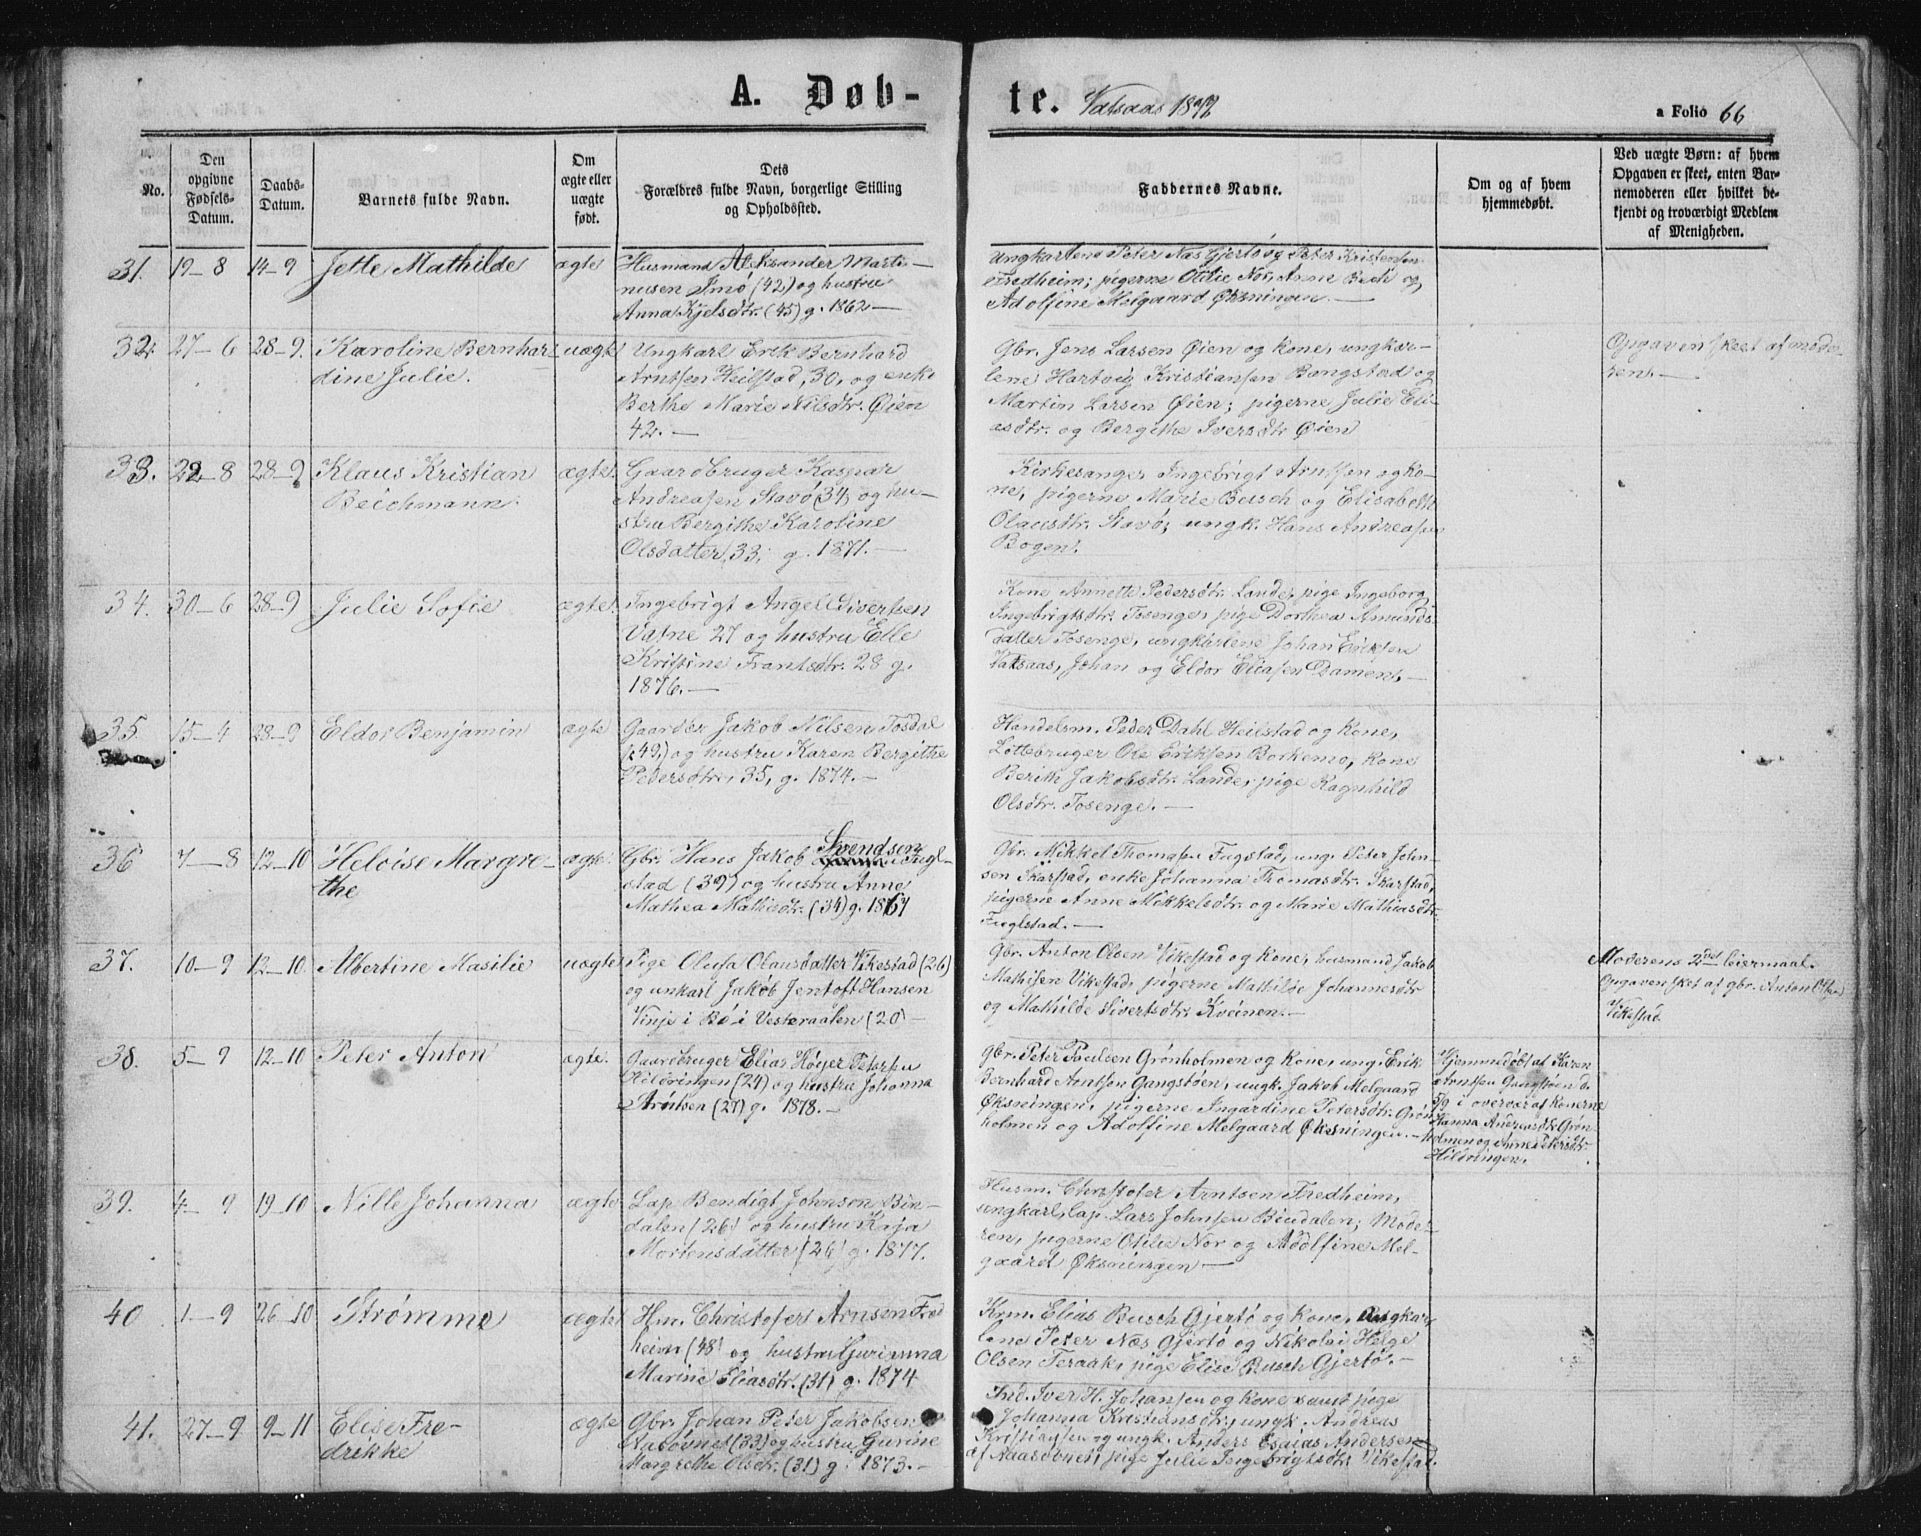 A. Døb-
te. Vatsaas 1878
a Folio 66
No.
Den opgivne Fødsels-Datum.
Daabs-Datum.
Barnets fulde Navn.
Om ægte eller uægte født.
Dets
Forældres fulde Navn, borgerlige Stilling
og Opholdssted.
Faddernes Navne.
Om og af hvem
hjemmedøbt.
Ved uægte Børn: af hvem
Opgaven er skeet, enten Bar-
nemoderen eller hvilket be-
kjendt og troværdigt Medlem
af Menigheden.
31. 19-8 14-9 Jette Mathilde ægte
Husmand Aleksander Marti-
nusen Smø (42) og hustru
Anna Kjelsdtr. (45) g. 1862-
Ungkarlene Peter Næs Gjertø og Peter Kristensen
Fredheim; pigerne Otilie Nor, Anne Bech og
Adolfine Melgaard Øksningen.-
32. 27-6 28-9. Karoline Bernhar- uægte
dine Julie.
Ungkarl Erik Bernhard
Arntsen Heilstad, 30, og enke
Berthe Marie Nilsdtr. Øien
42.-
Gbr. Jens Larsen Øien og kone, ungkar-
lene Hartvig Kristiansen Bangstad og
Martin Larsen Øien; pigerne Julie Eli-
asdtr. og Bergithe Iversdtr Øien
Opgaven skeet af mode-
ren.-
33. 22-8 28-9 Klaus Kristian ægte.
Beichmann.
Gaardbruger Kaspar
Andreasen Stavø (34) og hu-
stru Bergithe Karoline
Olsdatter, 33, g. 1871.-
Kirkesanger Ingebrigt Arntsen og ko-
ne, pigerne Marie Busch og Elisabeth
Olausdtr. Stavø, ungk. Hans Andreasen
Bogen.
34. 30-6 28-9 Julie Sofie ægte.
Ingebrigt Angel Sivertsen
Vatne 27 og hustru Elle
Kristine Frantsdtr. 28 g.
1876.-
Kone Annette Pedersdtr. Lande, pige Ingeborg
Ingebrigtsdtr. Tosenge, pige Dorthea Amunds-
datter Tosenge, ungkarlene Johan Eriksen
Vatsaas, Johan og Eldor Eliasen Damen.-
35. 15-4 28-9 Eldor Benjamin ægte
Gaardbr Jakob Nilsen Tosdal
(49) og hustru Karen Bergithe
Pedersdtr. 35, g. 1874.-
Handelsm. Peder Dahl Heilstad og kone,
Lottebruger Ole Eriksen Borkemo, kone
Berith Jakobsdtr. Lande, pige Ragnhild
Olsdtr. Tosenge.-
36 7-8 12-10 Heloise Margre- ægte.
the
Gbr. Hans Jakob Svendsen Fugl-
stad (39) og hustru Anne
Mathea Mathisdtr. (34) g. 1867
Gbr. Mikkel Thomasen Fugstad, ung. Peter John-
sen Skarstad, enke Johanna Thomasdtr. Skarstad,
pigerne Anne Mikkelsdtr. og Marie Mathiasdtr.
Fuglstad.-
37. 10-9 12-10. Albertine Masilie uægte
Pige Olufa Olausdatter Vikestad (26)
og unkarl Jakob Jentoft Hansen
Vinje i Bø i Vesteraalen (20)-
Gbr. Anton Olsen Vikestad og kone, husmand Jakob
Mathisen Vikestad, pigerne Mathilde Johannesdtr
og Mathilde Sivertsdtr. Kveinen.-
Moderens 2det leiermaal.
Opgaven sket af gbr. Anton Olsen
Vikestad
38. 5-9 12-10 Peter Anton ægte.
Gaardbruger Elias Høyer Petersen
Hildringen (24) og hustru Johanna
Arntsen (27) g. 1878.-
Gbr. Peter Poulsen Grønholmen og kone, ung. Erik
Bernhard Arntsen Gangstøen, ungk. Jakob Melgaard
Øksningen, pigerne Ingardine Petersdtr. Grøn-
holmen og Adolfine Melgaard Øksningen.-
Hjemmedøbt af Karen
Arntsen Gangstøen d.
5/9 i overvær af konerne
Hanna Andreasdtr Grøn-
holmen og Anne Petersdtr.
Hildringen.
39. 4-9 19-10 Nille Johanna ægte
Lap Bendigt Johnsen Bin-
dalen (26) og hustru Kaja
Mortensdatter (26) g. 1877.
Husm. Christofer Arntsen Fredheim,
ungkarl, lap Lars Johnsen Bindalen; Mode-
ren, pigerne Otilie Nor og Adolfine Mel-
gaard Øksningen-
40 1-9 26-10 Strømme ægte
Hm. Christofer Arnsen Fred
heim (48) og hustru Gurianna
Marine Eliasdtr. (31) g. 1874
Krm. Elias Busch Gjertø og kone, Ungkar
lene Peter Næs Gjertø og Nikolai Helge
Olsen Teraak, pige Elise Busch Gjertø.-
41. 27-9 9-11 Elise Fre- ægte
drikke
Gbr. Johan Peter Jakobsen
(33) og hustru Gurine
Margrethe Olsdtr. (31) g. 1873.-
Ind. Iver H. Johansen og kone samt pige
Johanna Kristiansdtr., ungk. Andreas
Kristiansen og ungk. Anders Esaias Andersen
af Aarsdvnet, pige Julie Ingebrigtsdtr Vikestad.